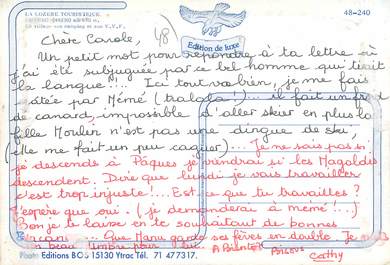 LA LOZERE TOURISTIQUE
48-240
Le village son camping et son V.V.F.
Edition de luxe
48
Chère Carole,
Un petit mot pour répondre à ta lettre où
j'ai été subjuguée par ce bel homme qui tirait
la langue.... Ici tout va bien, je me fais
gâtée par Mémé (tralala!)... il fait un froid
de canard, impossible d'aller skier en plus la
fille Moulin n'est pas une dingue de ski,
(elle me fait un peu caguer). Je ne sais pas si
je descends à Pâques je viendrai si les Magaldis
descendent. Dire que lundi je vais travailler
c'est trop injuste!... Est ce que tu travailles?
J'espère que oui. (je demanderai à mémé!...)
Bon je te laisse en te souhaitant de bonnes
que Manu garde ses fèves en double. Je
beau timbre pour lui. A Bientôt
Cathy
Photo Editions BOS 15130 Ytrac Tél. 71 477317.